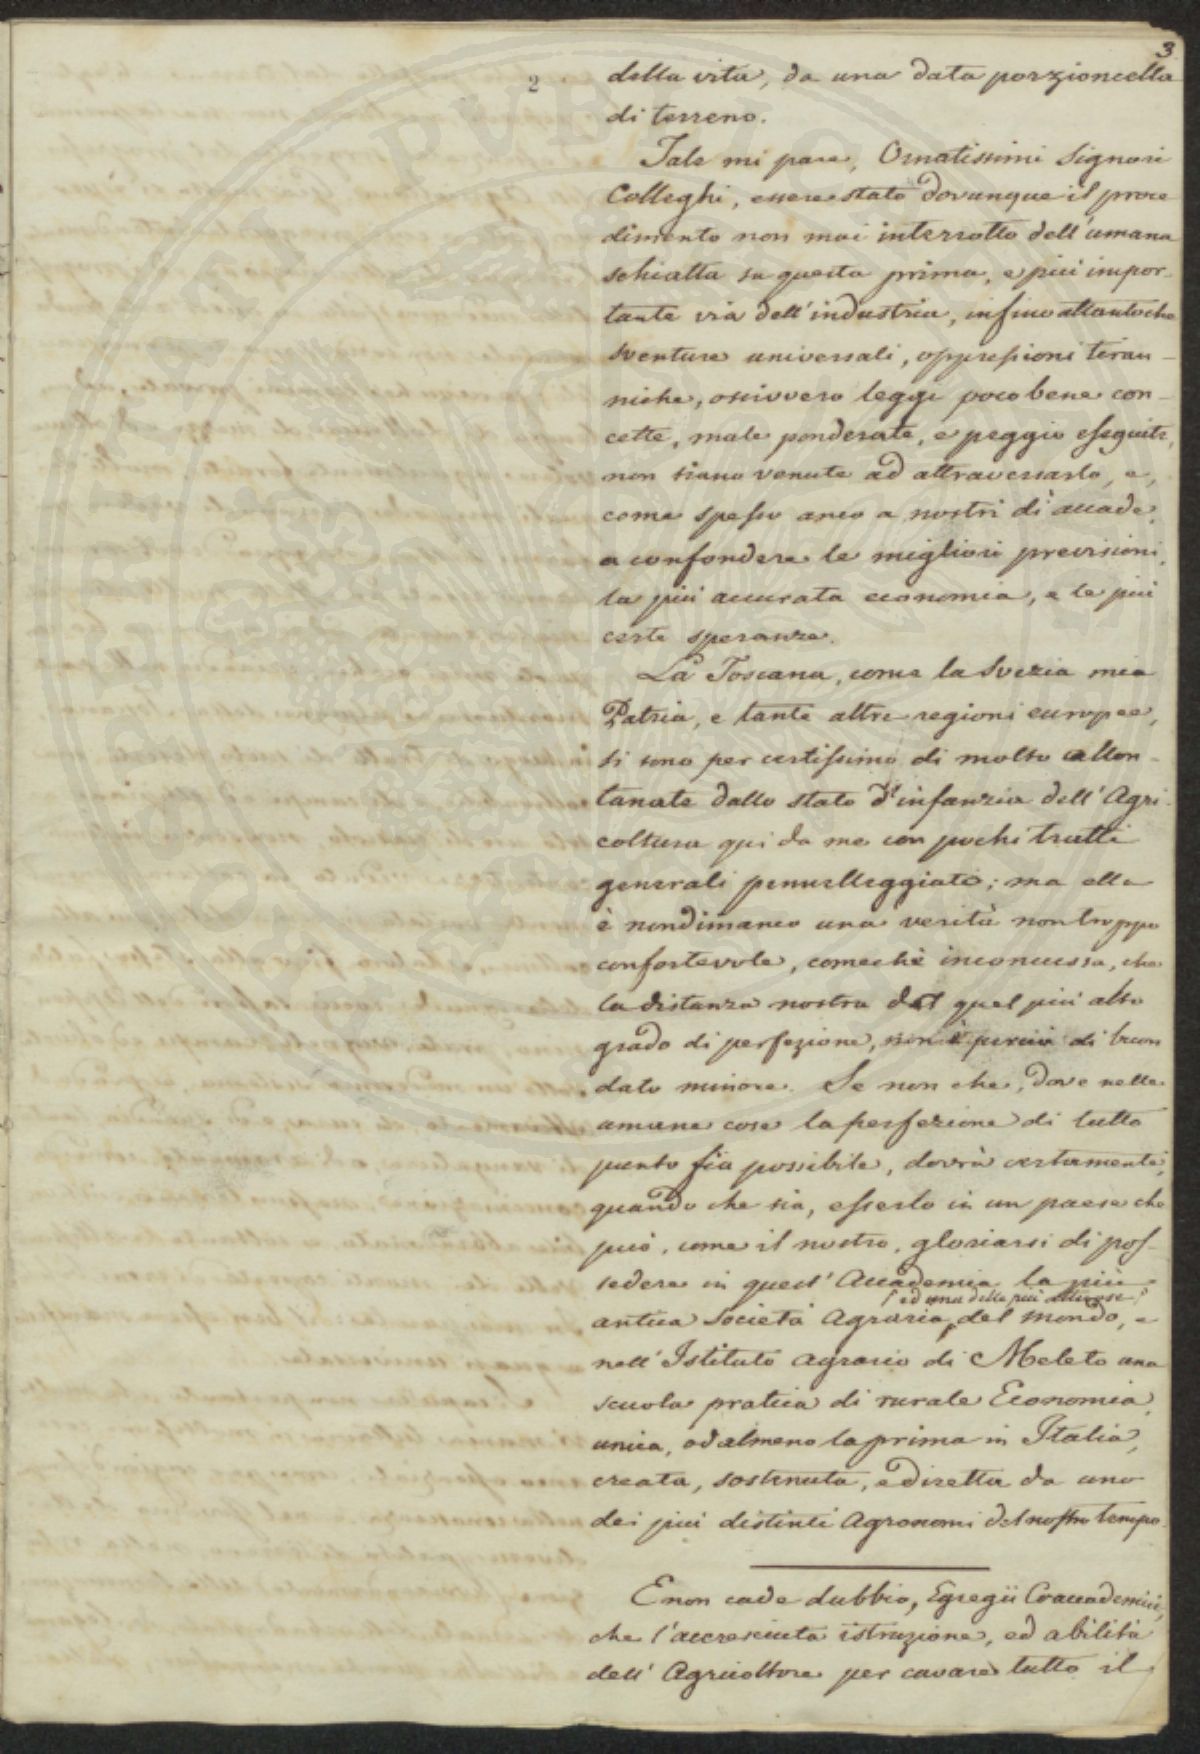 3
2
della vita, da una data porzioncella
di terreno.
Tale mi pare, Ornatissimi Signori
Colleghi, essere stato dovunque il proce
dimento non mai interrotto dell'umana
schiatta su questa prima, e più impor-
tante via dell'industria, infino attantoche
sventure universali, oppressioni tiran-
niche, ossivvero leggi poco bene con-
cette, male ponderate, e peggio eseguite,
non siano venute ad attraversarlo, e,
come spesso anco a nostri dì accade,
a confondere le migliori previsioni,
la più accurata economia, e le più
certe speranze.
La Toscana, come la Svezia mia
Patria, e tante altre regioni europee,
si sono per certissimo di molto allon-
tanate dallo stato d'infanzia dell'Agri-
coltura qui da me con pochi tratti
generali pennelleggiato; ma ella
è nondimanco una verità non troppo
confortevole, comechè inconcussa, che
la distanza nostra dal quel più alto
grado di perfezione, non è perciò di buon
dato minore. Se non che, dove nelle
umane cose la perfezione di tutto
punto fia possibile, dovrà certamente,
quando che sia, esserlo in un paese che
può, come il nostro, gloriarsi di pos-
sedere in quest'Accademia la più
ed una delle più attuose
antica Società Agraria, del mondo, e
nell'Istituto Agrario di Meleto una
scuola pratica di rurale Economia,
unica, od almeno la prima in Italia,
creata, sostenuta, e diretta da uno
dei più distinti Agronomi del nostro tempo.
E non cade dubbio, Egregii Coaccademici,
che l'accresciuta istruzione, ed abilità
dell'Agricoltore per cavare tutto il